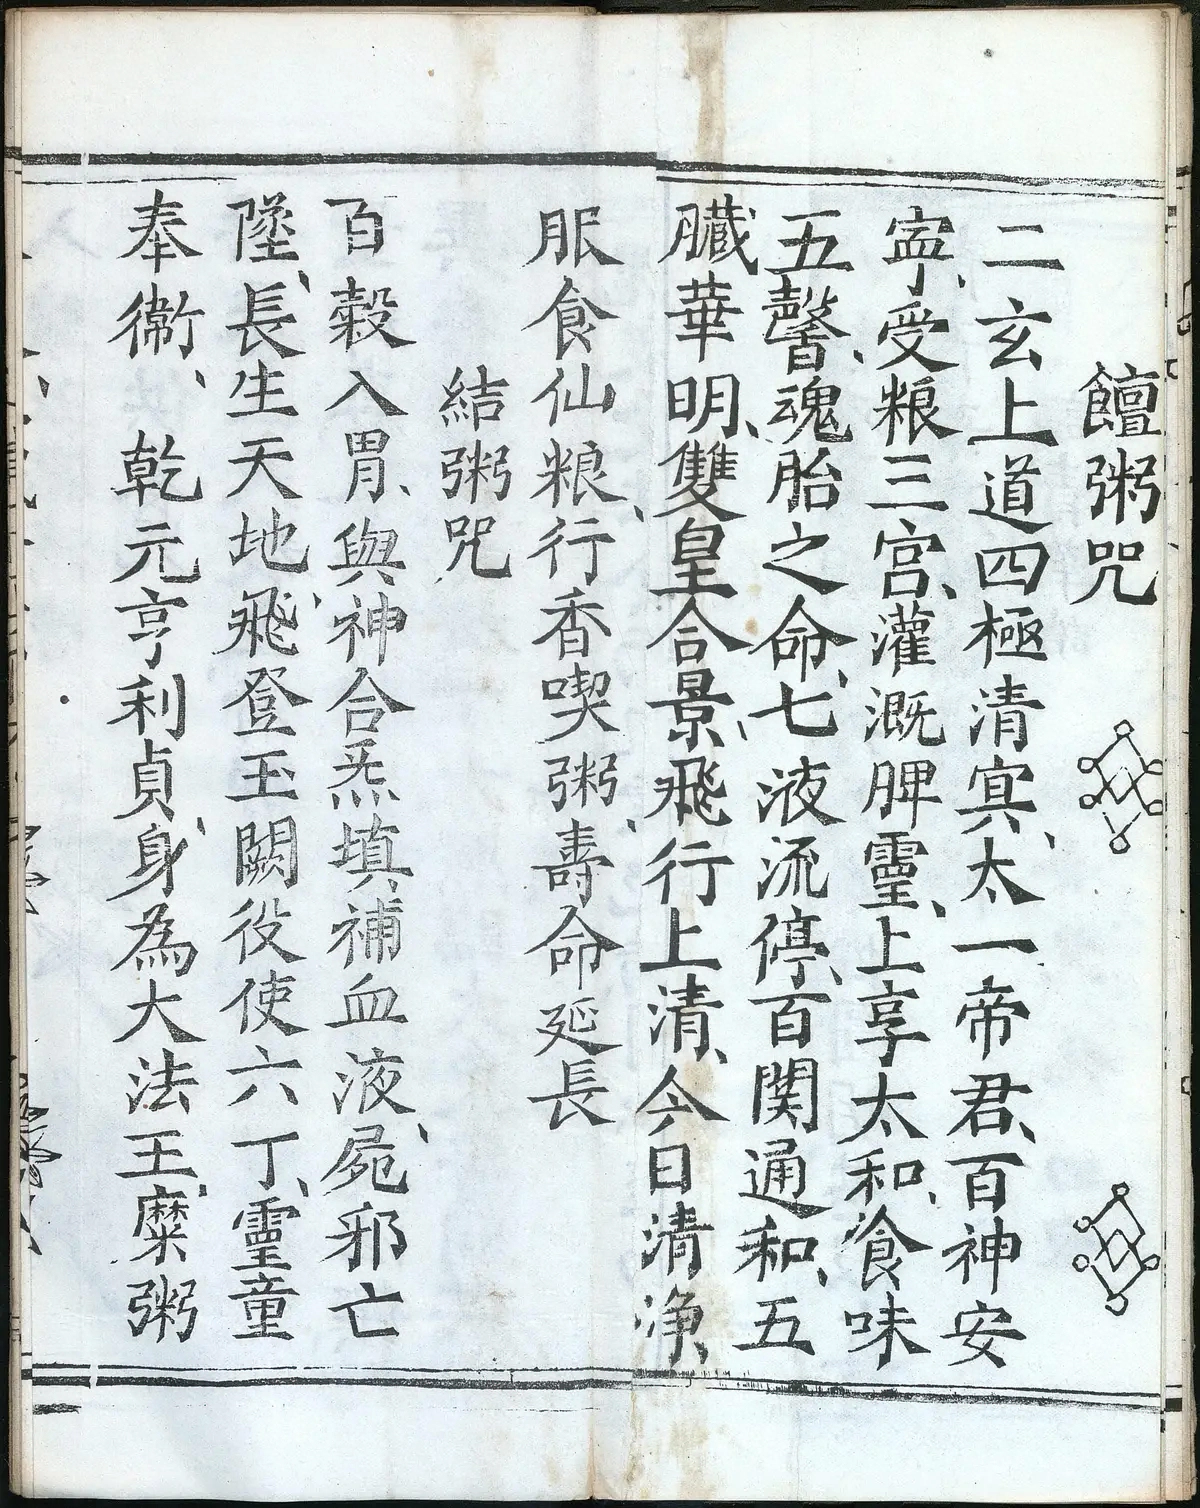 饘粥咒
二玄上道四極清㝠、太一帝君、百神安
寜、受粮三宫、灌溉脾靈、上享太和、食味
五馨、魂胎之命、七液流停、百関通和、五
臓華明、雙皇合景、飛行上清、今日清浄、
服食仙粮、行香喫粥、壽命延長
結粥咒
百穀入胃、與神合炁、填補血液、屍邪亡
墜、長生天地、飛登玉闕、役使六丁、靈童
奉衞、乾元亨利貞、身為大法王、糜粥